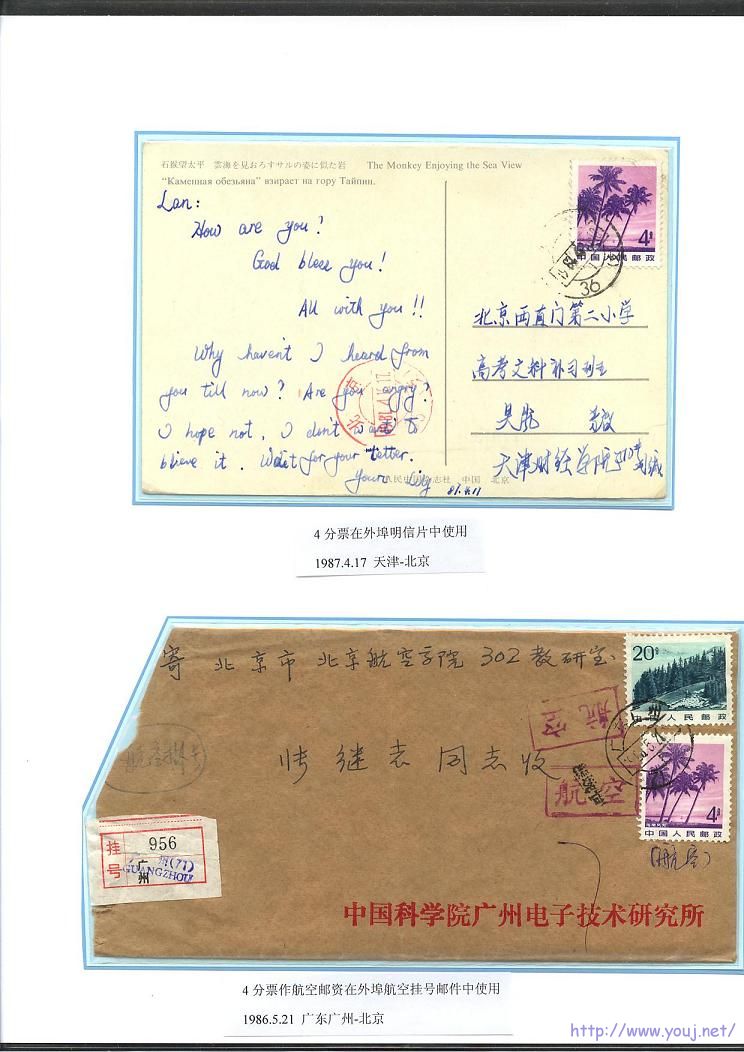 石猴望太平 雲海を見おろすサルの姿に似た岩 The Monkey Enjoying the Sea View
"Каменная обезьяна" взирает на гору Тайпин.
Lan:
How are you?
God bless you!
All with you!!
Why haven't I heard from
you till now? Are you angry?
I hope not, I don't want to
blieve it. Wait for your letter.
Yours
87.4.11
人民中国杂志社 中国 北京
4分
中国人民邮政
36
北京西直门第二小学
高考文科补习班
吴航
天津财经学院
4分票在外埠明信片中使用
1987.4.17 天津-北京
寄 北京市 北京航空学院 302教研室
继志同志收
20分
中国人民邮政
4分
中国人民邮政
航空
航空
航空挂号
(航空)
挂号
956
广州(77)
GUANGZHOU
广州
中国科学院广州电子技术研究所
4分票作航空邮资在外埠航空挂号邮件中使用
1986.5.21 广东广州-北京
http://www.youj.net/